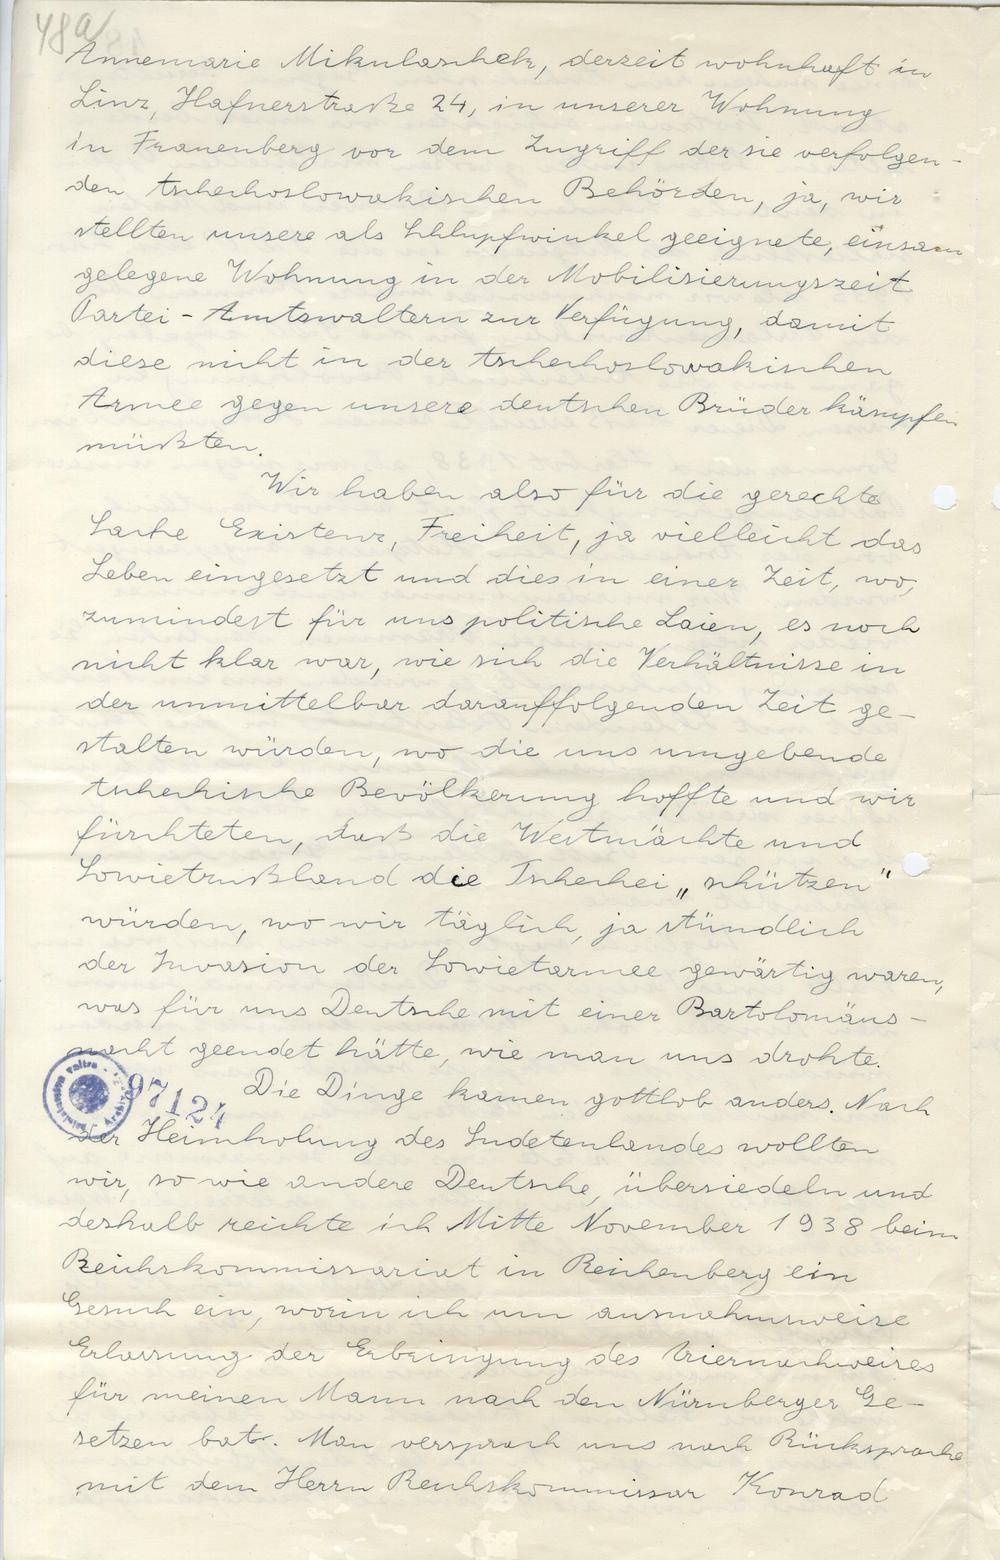 48a
Annemarie Mikulaschek, derzeit wohnhaft in
Linz, Hafnerstraße 24, in unserer Wohnung
in Frauenberg vor dem Zugriff der sie verfolgen-
den tschechoslowakischen Behörden, ja, wir
stellten unsere als Schlupfwinkel geeignete, einsam
gelegene Wohnung in der Mobilisierungszeit
Partei-Amtswaltern zur Verfügung, damit
diese nicht in der tschechoslowakischen
Armee gegen unsere deutschen Brüder kämpfen
müßten.
Wir haben also für die gerechte
Sache Existenz, Freiheit, ja vielleicht das
Leben eingesetzt und dies in einer Zeit, wo,
zumindest für uns politische Laien, es noch
nicht klar war, wie sich die Verhältnisse in
der unmittelbar darauffolgenden Zeit ge-
stalten würden, wo die uns umgebende
tschechische Bevölkerung hoffte und wir
fürchteten, daß die Westmächte und
Sowietrußland die Tschechei „schützen"
würden, wo wir täglich, ja stündlich
der Invasion der Sowietarmee gewärtig waren,
was für uns Deutsche mit einer Bartolomäus-
nacht geendet hätte, wie man uns drohte.
Die Dinge kamen gottlob anders. Nach
97124
der Heimholung des Sudetenlandes wollten
wir, so wie andere Deutsche, übersiedeln und
deshalb reichte ich Mitte November 1938 beim
Reichskommissariat in Reichenberg ein
Gesuch ein, worin ich um ausnahmsweise
Erlassung der Erbringung des Ariernachweises
für meinen Mann nach den Nürnberger Ge-
setzen bat. Man versprach uns nach Rücksprache
mit dem Herrn Reichskommissar Konrad